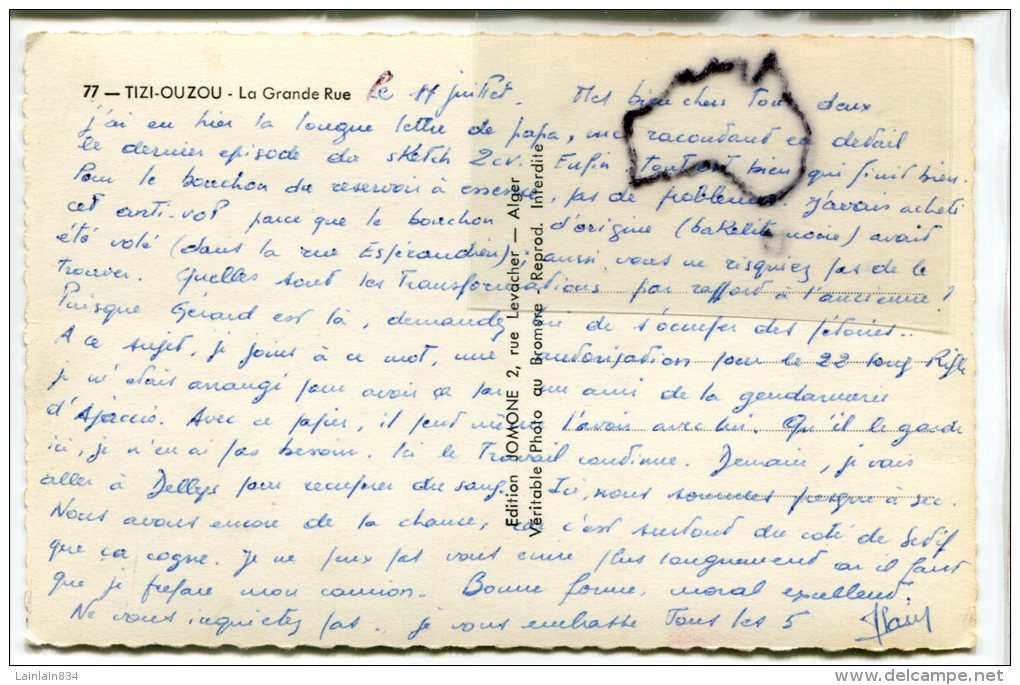 77 — TIZI-OUZOU - La Grande Rue
Le 11 juillet. Mes bien chers tous deux
j'ai eu hier la longue lettre de papa, me racontant en detail
le dernier episode du sketch 2cv. Enfin, tout est bien qui finit bien.
Pour le bouchon du reservoir à essence, pas de problème, j'avais acheté
cet anti-vol parce que le bouchon d'origine (bakelite noire) avait
été volé (dans la rue Espérandieu); aussi vous ne risquiez pas de le
trouver. Quelles sont les transformations par rapport à l'ancienne ?
Puisque Gérard est là, demandez lui de s'occuper des pétoires..
A ce sujet, je joins à ce mot, une autorisation pour le 22 long Rifle
je m'étais arrangé pour avoir ça par un ami de la gendarmerie
d'Ajaccio. Avec ce papier, il peut même l'avoir avec lui. Qu'il le garde
ici, je n'en ai pas besoin. Ici le travail continue. Demain, je vais
aller à Dellys pour recuperer du sang. Ici, nous sommes presque à sec.
Nous avons encore de la chance, car c'est surtout du coté de Setif
que ça cogne. Je ne peux pas vous ecrire plus longuement car il faut
que je prépare mon camion. Bonne forme, moral excellent.
Ne vous inquietez pas.. je vous embrasse tous les 5
Alain
Edition JOMONE 2, rue Levacher — Alger
Véritable Photo au Bromure - Reprod. Interdite
Lainlain834
www.delcampe.net